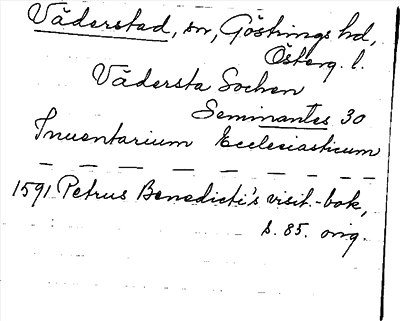 Väderstad, sn, Göstrings hd,
Österg. l.
Vädersta Sochen
Seminantes 30
Inuentarium Ecclesiasticum
1591 Petrus Benedicti's visit.-bok,
s. 85. orig.